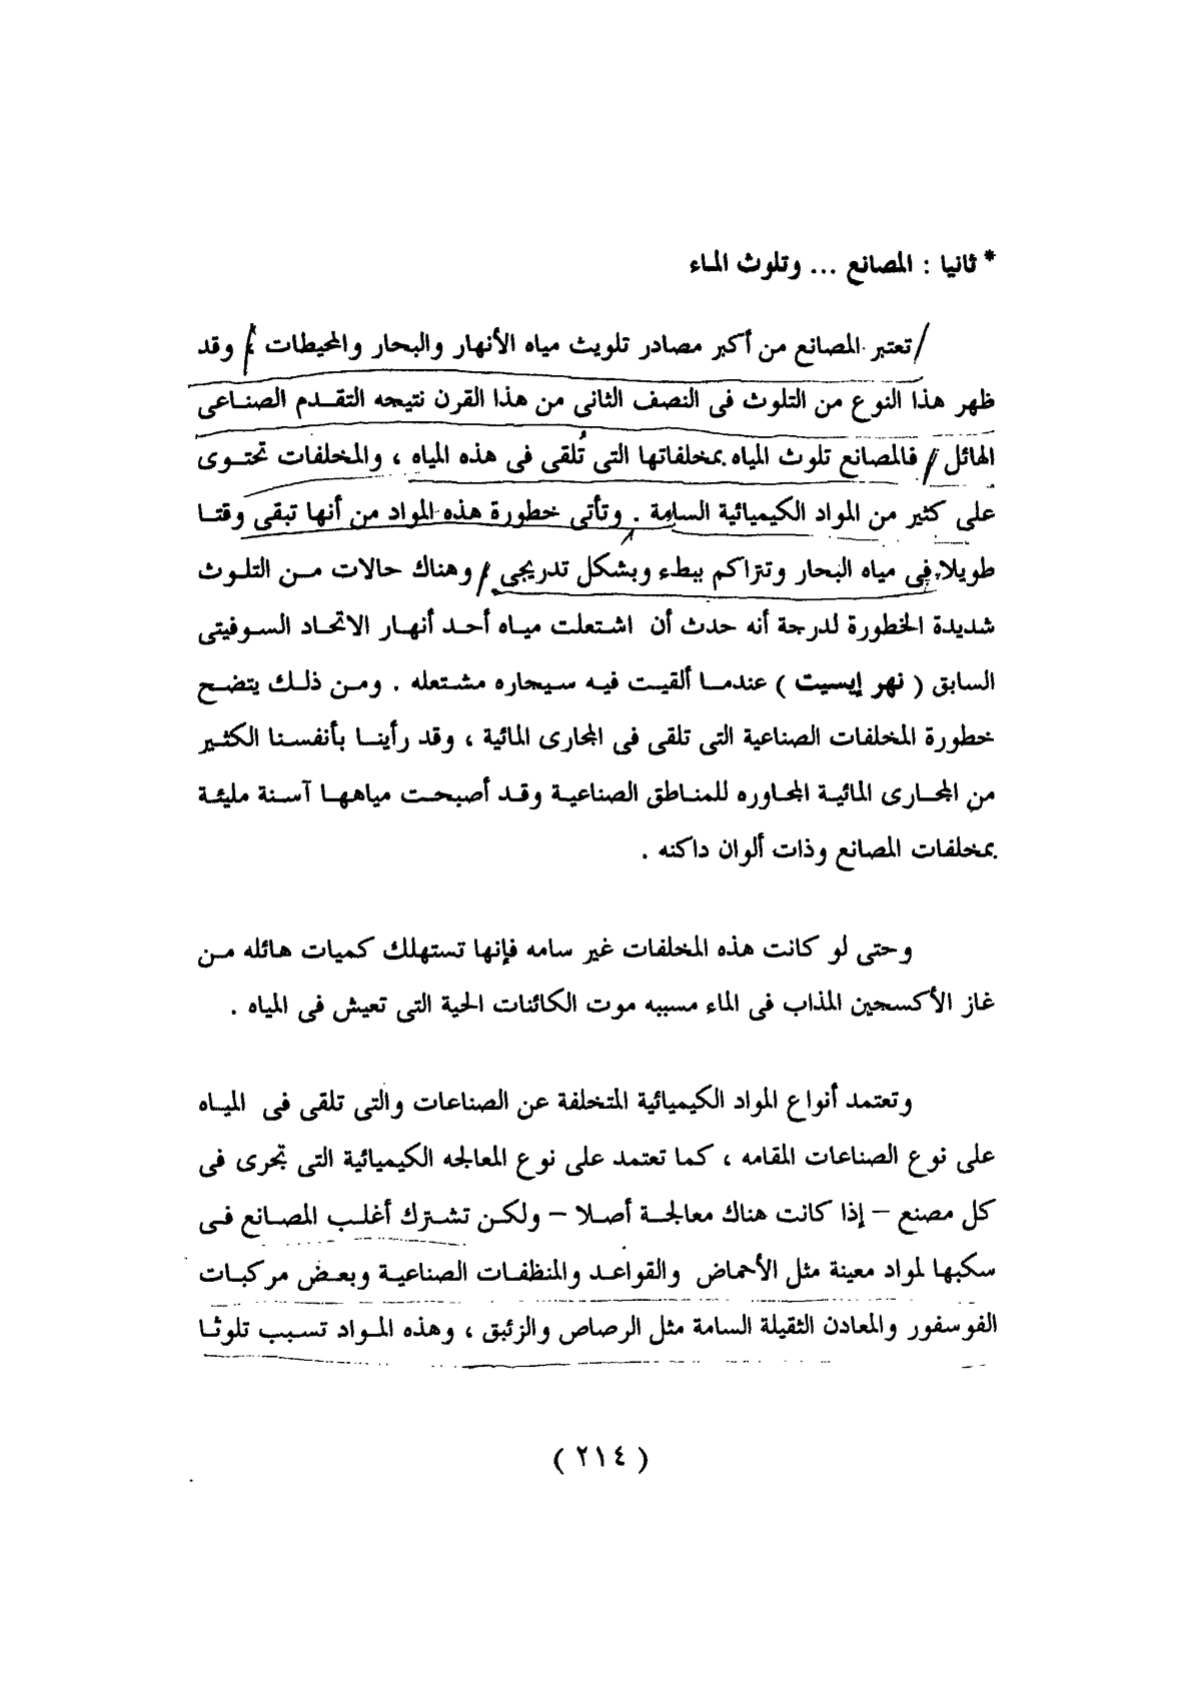 * ثانيا : المصانع ... وتلوث الماء
تعتبر المصانع من أكبر مصادر تلويث مياه الأنهار والبحار والمحيطات ؛ وقد
ظهر هذا النوع من التلوث فى النصف الثانى من هذا القرن نتيجه التقدم الصناعى
الهائل فالمصانع تلوث المياه بمخلفاتها التى تُلقى فى هذه المياه ، والمخلفات تحتوى
على كثير من المواد الكيميائية السامة . وتأتى خطورة هذه المواد من أنها تبقى وقتا
طويلا فى مياه البحار وتتراكم ببطء وبشكل تدريجى وهناك حالات من التلوث
شديدة الخطورة لدرجة أنه حدث أن اشتعلت مياه أحد أنهار الاتحاد السوفيتى
السابق ( نهر إيسيت ) عندما ألقيت فيه سيجاره مشتعله . ومن ذلك يتضح
خطورة المخلفات الصناعية التى تلقى فى المجارى المائية ، وقد رأينا بأنفسنا الكثير
من المجارى المائية المجاوره للمناطق الصناعية وقد أصبحت مياهها آسنة مليئة
بمخلفات المصانع وذات ألوان داكنه .
وحتى لو كانت هذه المخلفات غير سامه فإنها تستهلك كميات هائله من
غاز الأكسجين المذاب فى الماء مسببه موت الكائنات الحية التى تعيش فى المياه .
وتعتمد أنواع المواد الكيميائية المتخلفة عن الصناعات والتى تلقى فى المياه
على نوع الصناعات المقامه ، كما تعتمد على نوع المعالجه الكيميائية التى تجرى فى
كل مصنع – إذا كانت هناك معالجة أصلا – ولكن تشترك أغلب المصانع فى
سكبها لمواد معينة مثل الأحماض والقواعد والمنظفات الصناعية وبعض مركبات
الفوسفور والمعادن الثقيلة السامة مثل الرصاص والزئبق ، وهذه المواد تسبب تلوثا
( ٢١٤ )